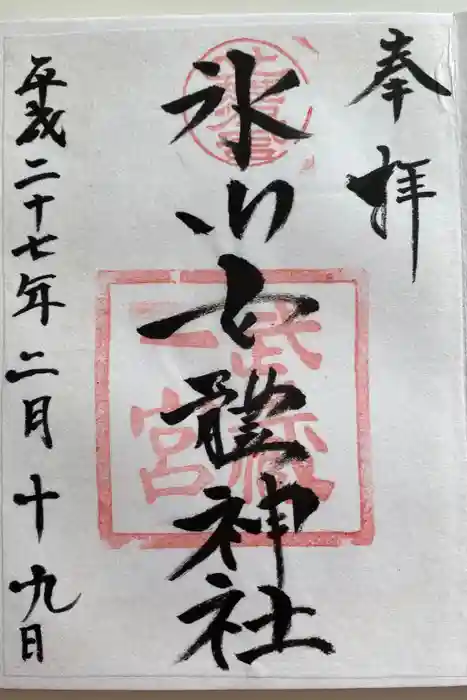 奉拝
氷川女體神社
武蔵
一宮
平成二十七年二月十九日